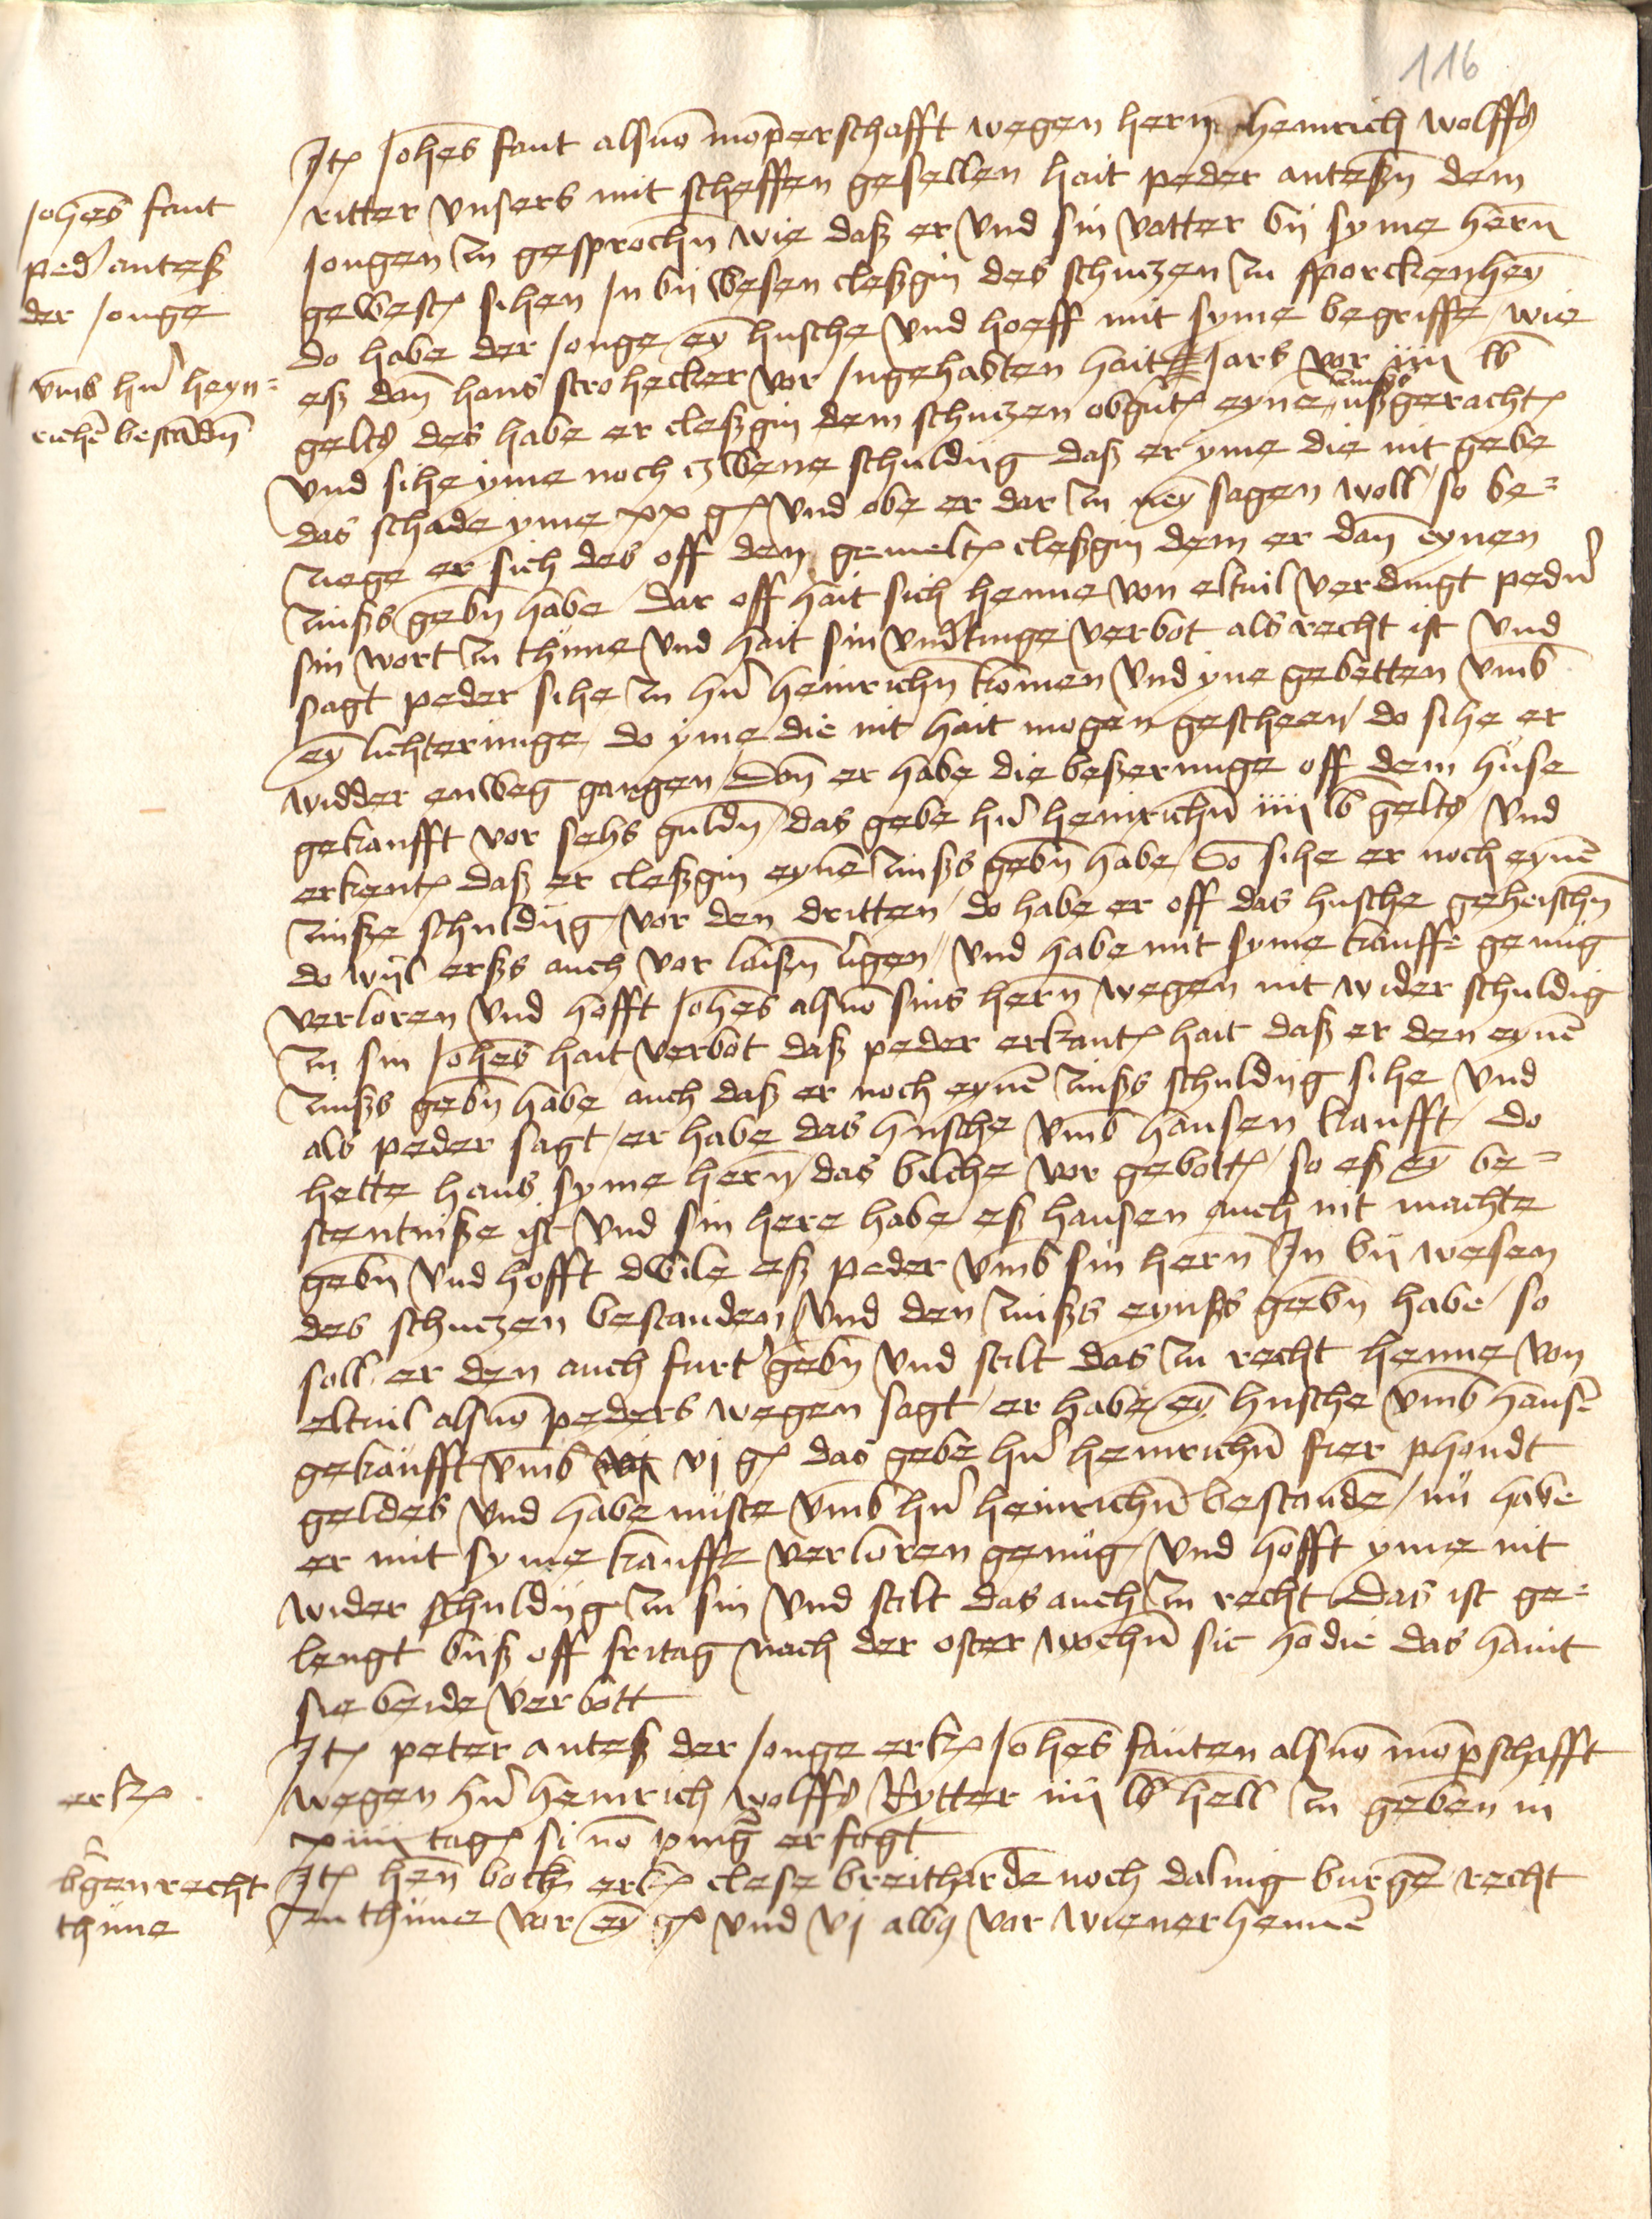 116
Itē Joh̅es faut als vō mōperschafft wegen hern heinrich wolffs
ritter unsers mit scheffen gesellen hait peder anteßn̄ dem
Jongen zu gesproch̅n wie daß er und sin vatter by syme her̅n
gewest sihen In by wesen cleßgin des schutzen zu spoorckenhey̅
do habe der Jonge ey̅ husche und hoeff mit syme begriffe wie
eß dan̄ hans strohecker vor Ingehabten hait Jars vor iiij lb
gelts des habe er cleßgin dem schutzen obgut̅ eyne̅ zinß ußgeracht
und sihe yme noch zwene schuldig daß er yme die nit gebe
das schade yme xx g und obe er dar zu ney̅ sagen woll so be=
ziege er sich des off den gemelt cleßgin dem er dan̄ eynen
zinßs geb̅n habe dar off hait sich henne von eltvil verdingt peder̅
sin wort zu thune und hait sin underdinge verbot als recht ist und
sagt peder sihe zu h̅n heinrich̅n komen und yne gebetten umb
ey̅ lichterunge do yme die nit hait mogen gescheen do sihe er
widder enweg gangen Dan̄ er habe die beßerunge off dem huse
gekaufft vor sehs guld̅n das gebe h̅n heinrich̅n iiij lb gelts und
erkent daß er cleßgin eyne̅ zinßs geb̅n habe So sihe er noch eyne̅
zinße schuldig vor den dritten do habe er off das husche geheisch̅n
do wyl erßs auch vor laiß̅n ligen und habe mit syme kauff genug
verloren und hofft Joh̅es als vō sins her̅n wegen nit wider schuldig
zu sin Joh̅es hait verbot daß peder erkant hait daß er den eyne̅
zinßs geb̅n habe auch daß er noch eyne̅ zinßs schuldig sihe und
als peder sagt er habe das husche umb hansen kaufft do
hette hans syme her̅n das biliche vor gebott so eß ey̅ be=
stentniße ist und sin here habe eß hansen auch nit machte
geb̅n und hofft dwile eß peder umb sin her̅n In by wesen
des schutzen bestanden und den zinßs eynßs geb̅n habe so
soll er den auch furt geb̅n und stilt das zu recht henne von
eltvil als vō peders wegen sagt er habe ey̅ husche umb hanse̅
gekaufft umb vj g das gebe h̅n heinrich̅n fier phondt
geldes und habe nuste umb h̅n heinrich̅n bestande̅ nu habe
er mit syme kauffe verloren genug und hofft yme nit
wider schuldig zu sin und stilt das auch zu recht Das ist ge=
lengt biß off fritag nach der oster woch̅n sic hodie das haint
sie beide verbott
Itē peter anteß der Jonge erk̅ Joh̅es fauten als vō mōp̅schafft
wegen h̅n heinrich wolffs Rytter iiij lb hell zu geben in
xiiij tage si nō pung̅ erfolgt
Itē hen̄ bock erk̅ clese breitharde noch daling burge̅ recht
zu thune vor ey̅ g und vj albq vor wienerhenne̅
Joh̅es faut
ped̅ anteß
der Jonge
umb h̅n heyn=
riche̅ bestād̅n
erk̅
b̅genrecht
thune